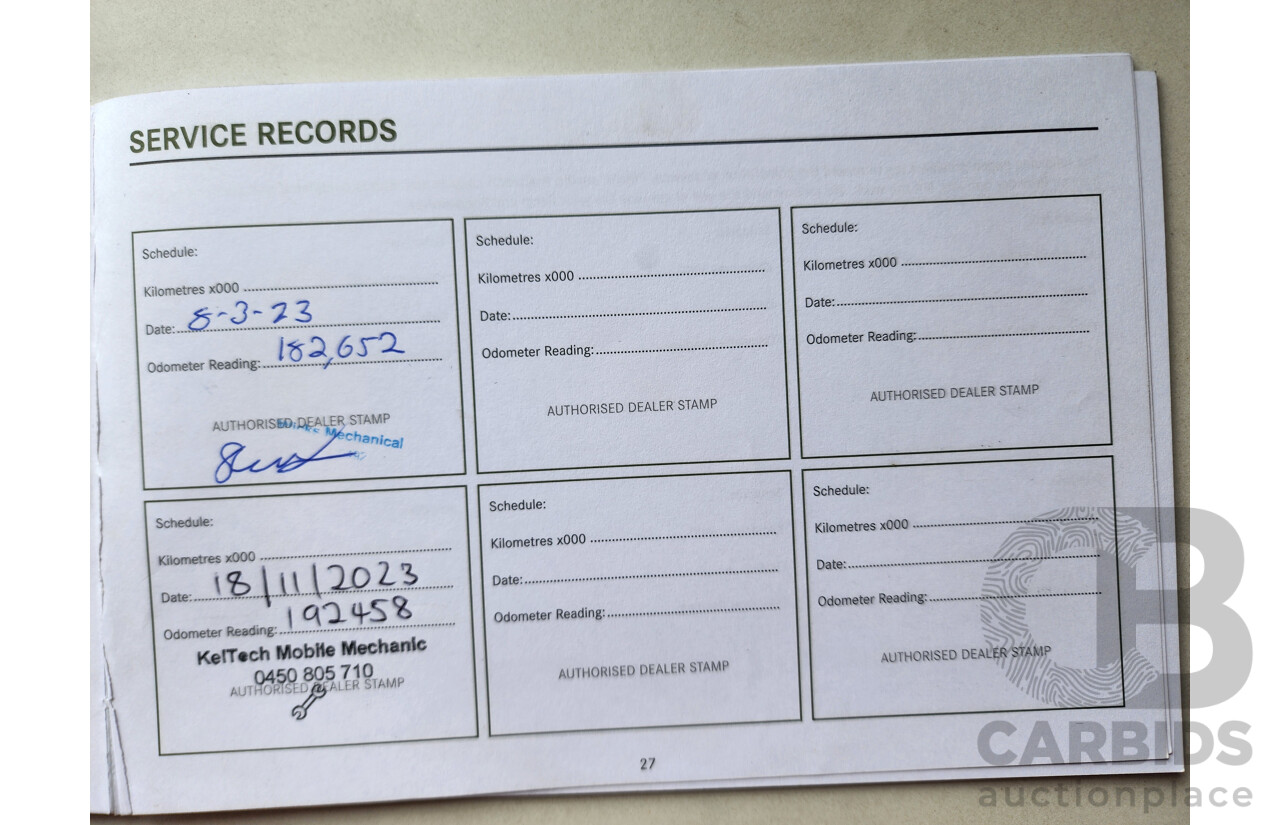 SERVICE RECORDS
Schedule:
Kilometres x000
Date: 8-3-23
Odometer Reading: 182,652
AUTHORISED DEALER STAMP
Mechanical
Schedule:
Kilometres x000
Date:
Odometer Reading:
AUTHORISED DEALER STAMP
Schedule:
Kilometres x000
Date:
Odometer Reading:
AUTHORISED DEALER STAMP
Schedule:
Kilometres x000
Date: 18/11/2023
Odometer Reading: 192458
KelTech Mobile Mechanic
0450 805 710
AUTHORISED DEALER STAMP
Schedule:
Kilometres x000
Date:
Odometer Reading:
AUTHORISED DEALER STAMP
Schedule:
Kilometres x000
Date:
Odometer Reading:
AUTHORISED DEALER STAMP
27
CB
CARBIDS
auctionplace